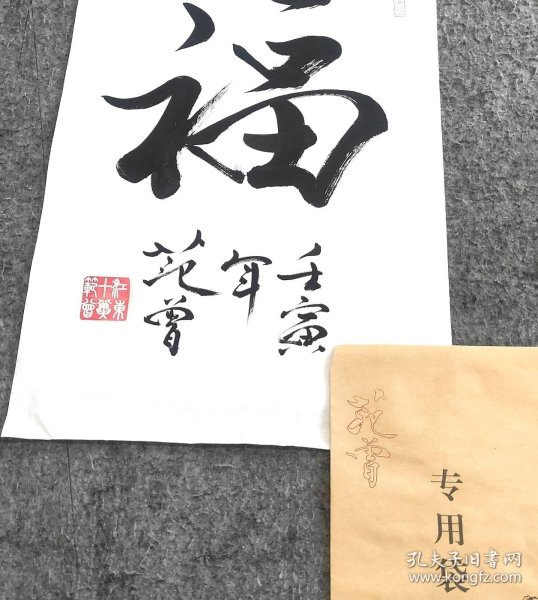 福
壬寅
年
范曾
江東
十翼
範曾
范曾
专用袋
孔夫子旧书网
www.kongfz.com